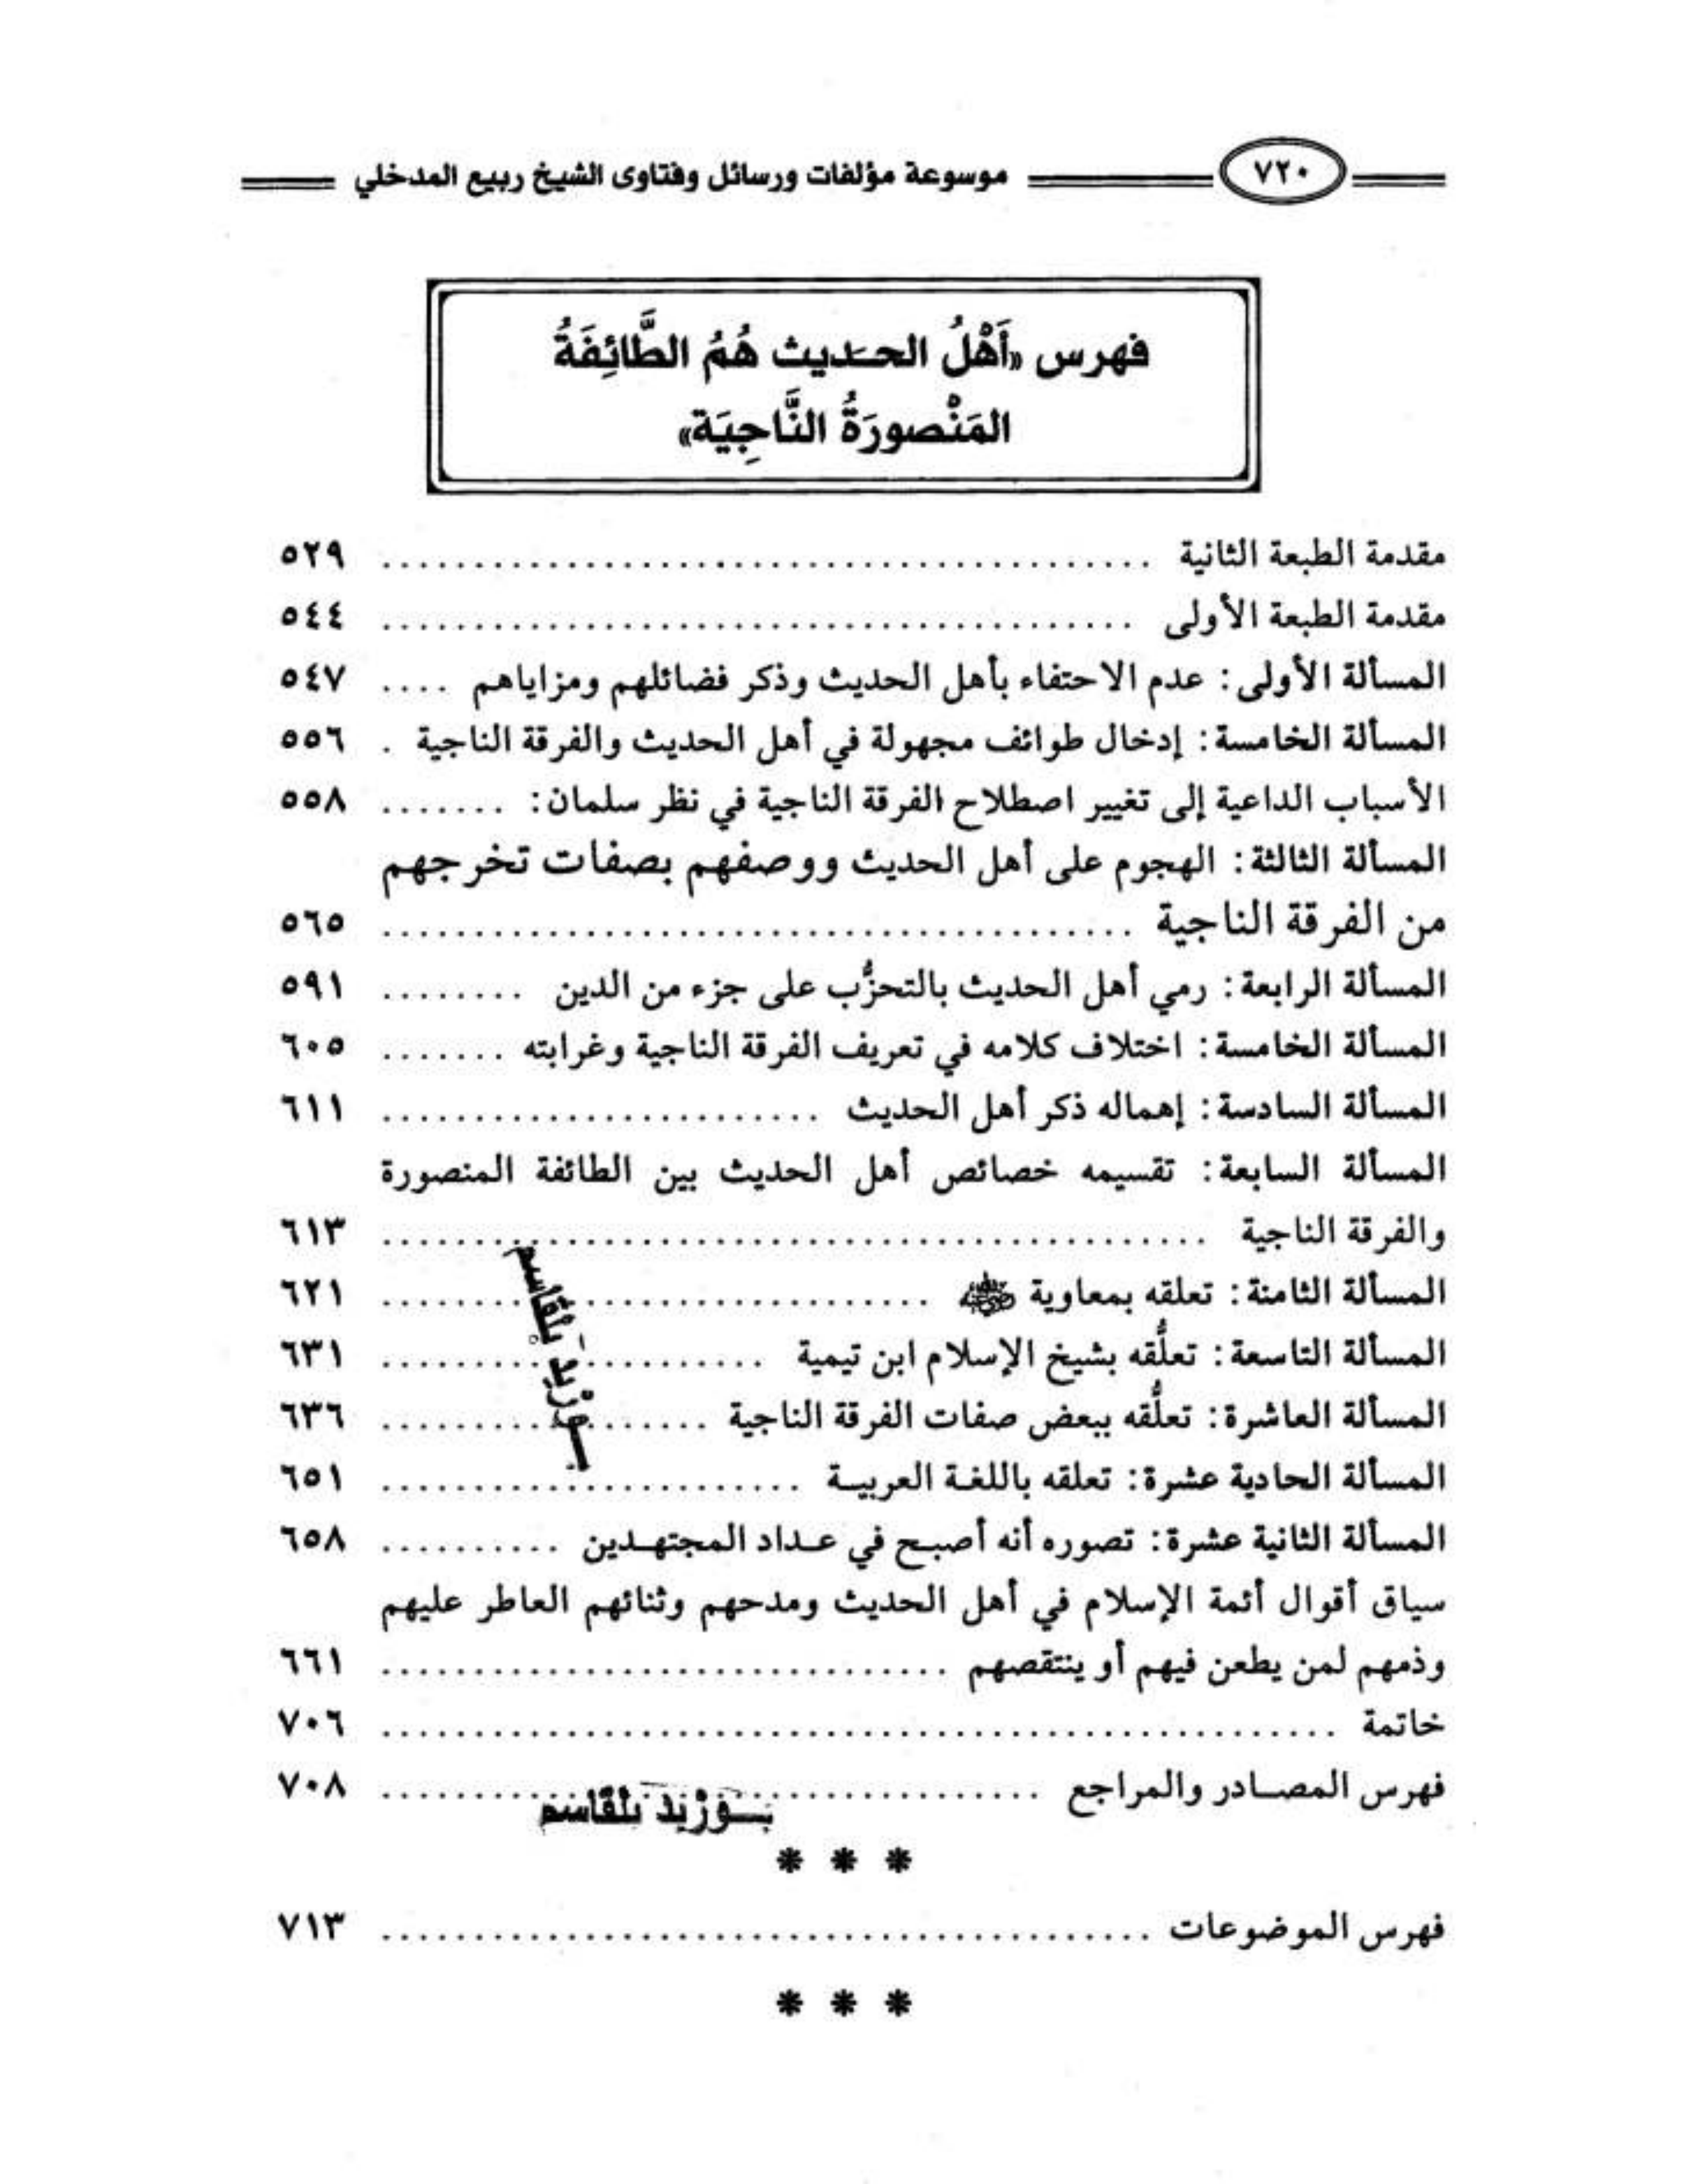 ٧٢٠ موسوعة مؤلفات ورسائل وفتاوى الشيخ ربيع المدخلي
فهرس «أَهْلُ الحديث هُمُ الطَّائِفَةُ
المَنْصورَةُ النَّاجِيَة»
مقدمة الطبعة الثانية ........ ٥٢٩
مقدمة الطبعة الأولى ........ ٥٤٤
المسألة الأولى: عدم الاحتفاء بأهل الحديث وذكر فضائلهم ومزاياهم .... ٥٤٧
المسألة الخامسة: إدخال طوائف مجهولة في أهل الحديث والفرقة الناجية . ٥٥٦
الأسباب الداعية إلى تغيير اصطلاح الفرقة الناجية في نظر سلمان: ....... ٥٥٨
المسألة الثالثة: الهجوم على أهل الحديث ووصفهم بصفات تخرجهم
من الفرقة الناجية ........ ٥٦٥
المسألة الرابعة: رمي أهل الحديث بالتحزُّب على جزء من الدين ........ ٥٩١
المسألة الخامسة: اختلاف كلامه في تعريف الفرقة الناجية وغرابته ....... ٦٠٥
المسألة السادسة: إهماله ذكر أهل الحديث ........ ٦١١
المسألة السابعة: تقسيمه خصائص أهل الحديث بين الطائفة المنصورة
والفرقة الناجية ........ ٦١٣
المسألة الثامنة: تعلقه بمعاوية رضي الله عنه ........ ٦٢١
المسألة التاسعة: تعلُّقه بشيخ الإسلام ابن تيمية ........ ٦٣١
المسألة العاشرة: تعلُّقه ببعض صفات الفرقة الناجية ........ ٦٣٦
المسألة الحادية عشرة: تعلقه باللغة العربية ........ ٦٥١
المسألة الثانية عشرة: تصوره أنه أصبح في عداد المجتهدين .......... ٦٥٨
سياق أقوال أئمة الإسلام في أهل الحديث ومدحهم وثنائهم العاطر عليهم
وذمهم لمن يطعن فيهم أو ينتقصهم ........ ٦٦١
خاتمة ........ ٧٠٦
فهرس المصادر والمراجع ........ ٧٠٨
بوزيد بلقاسم
بوزيد بلقاسم
* * *
فهرس الموضوعات ........ ٧١٣
* * *